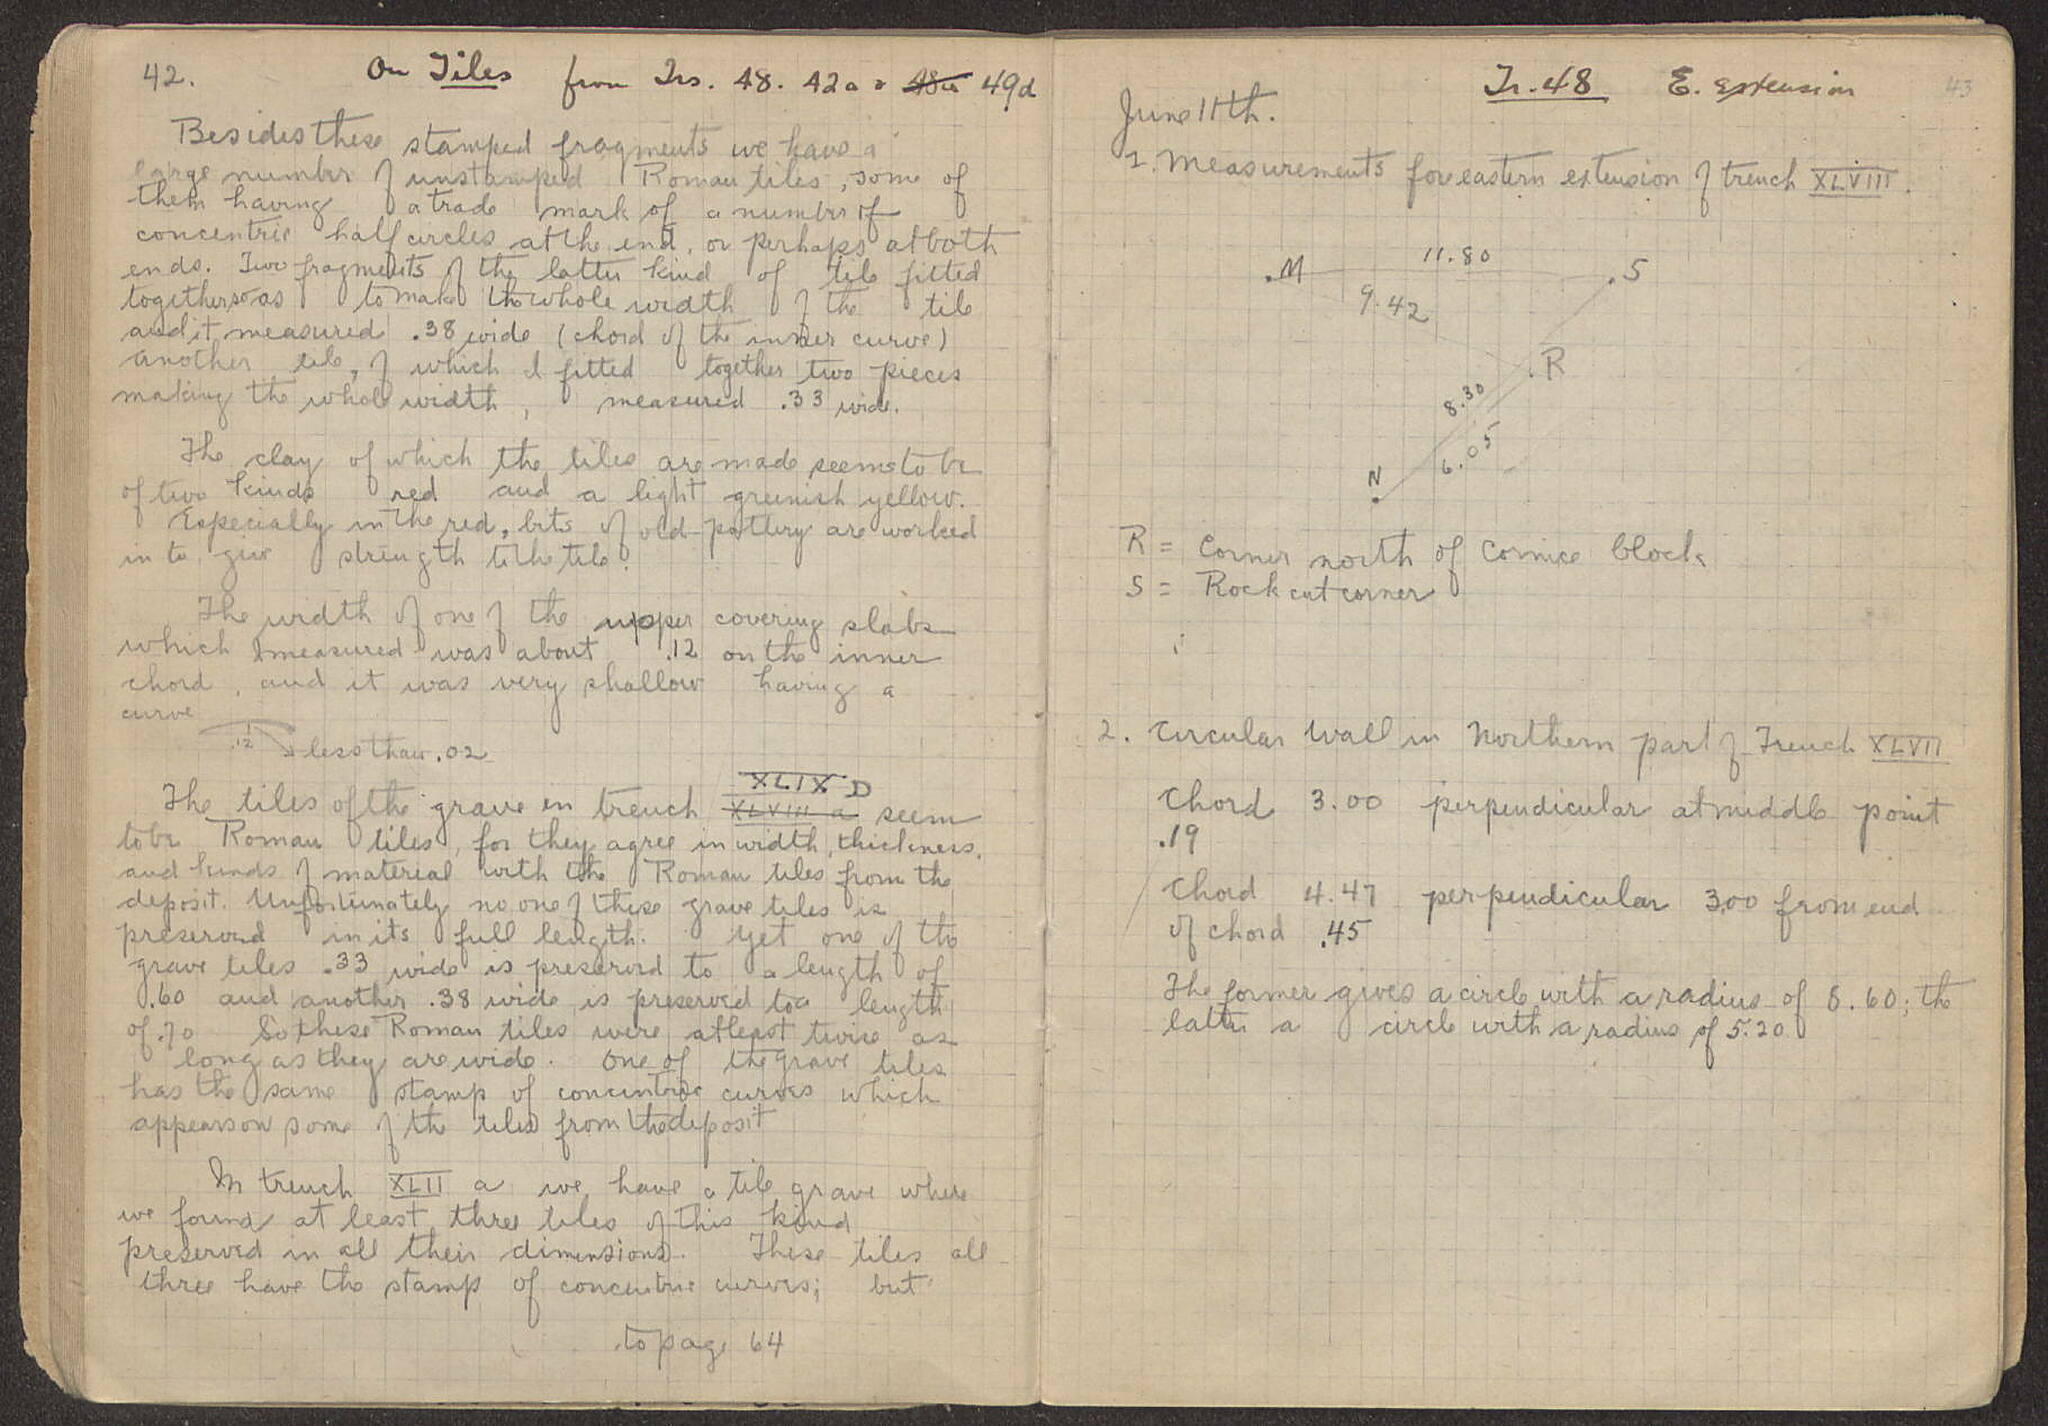 42.
On Tiles from Trs. 48. 42a & 48a 49d
Besides these stamped fragments we have a
large number of unstamped Roman tiles, some of
them having a trade mark of a number of
concentric half circles at the end, or perhaps at both
ends. Two fragments of the latter kind of tile fitted
together so as to make the whole width of the tile
and it measured .38 wide (chord of the inner curve)
another tile, of which I fitted together two pieces
making the whole width, measured .33 wide.
The clay of which the tiles are made seems to be
of two kinds red and a light greenish yellow.
Especially in the red, bits of old pottery are worked
in to give strength to the tile.
The width of one of the upper covering slabs
which I measured was about .12 on the inner
chord, and it was very shallow having a
curve
.12
less than .02
XLIX D
The tiles of the grave in trench XLVIII a seem
to be Roman tiles, for they agree in width, thickness,
and kinds of material with the Roman tiles from the
deposit. Unfortunately no one of these grave tiles is
preserved in its full length. Yet one of the
grave tiles .33 wide is preserved to a length of
.60 and another .38 wide is preserved to a length
of .70 So these Roman tiles were at least twice as
long as they are wide. One of the grave tiles
has the same stamp of concentric curves which
appears on some of the tiles from the deposit
In trench XLII a we have a tile grave where
we found at least three tiles of this kind
preserved in all their dimensions. These tiles all
three have the stamp of concentric curves; but
to page 64
Tr. 48 E. extension
43
June 11th.
1. Measurements for eastern extension of trench XLVIII.
M 11.80 S
9.42
R
8.30
6.05
N
R = Corner north of Cornice block
S = Rock cut corner
2. Circular Wall in Northern part of Trench XLVII
Chord 3.00 perpendicular at middle point
.19
Chord 4.47 perpendicular 3.00 from end
of chord .45
The former gives a circle with a radius of 5.60; the
latter a circle with a radius of 5.20